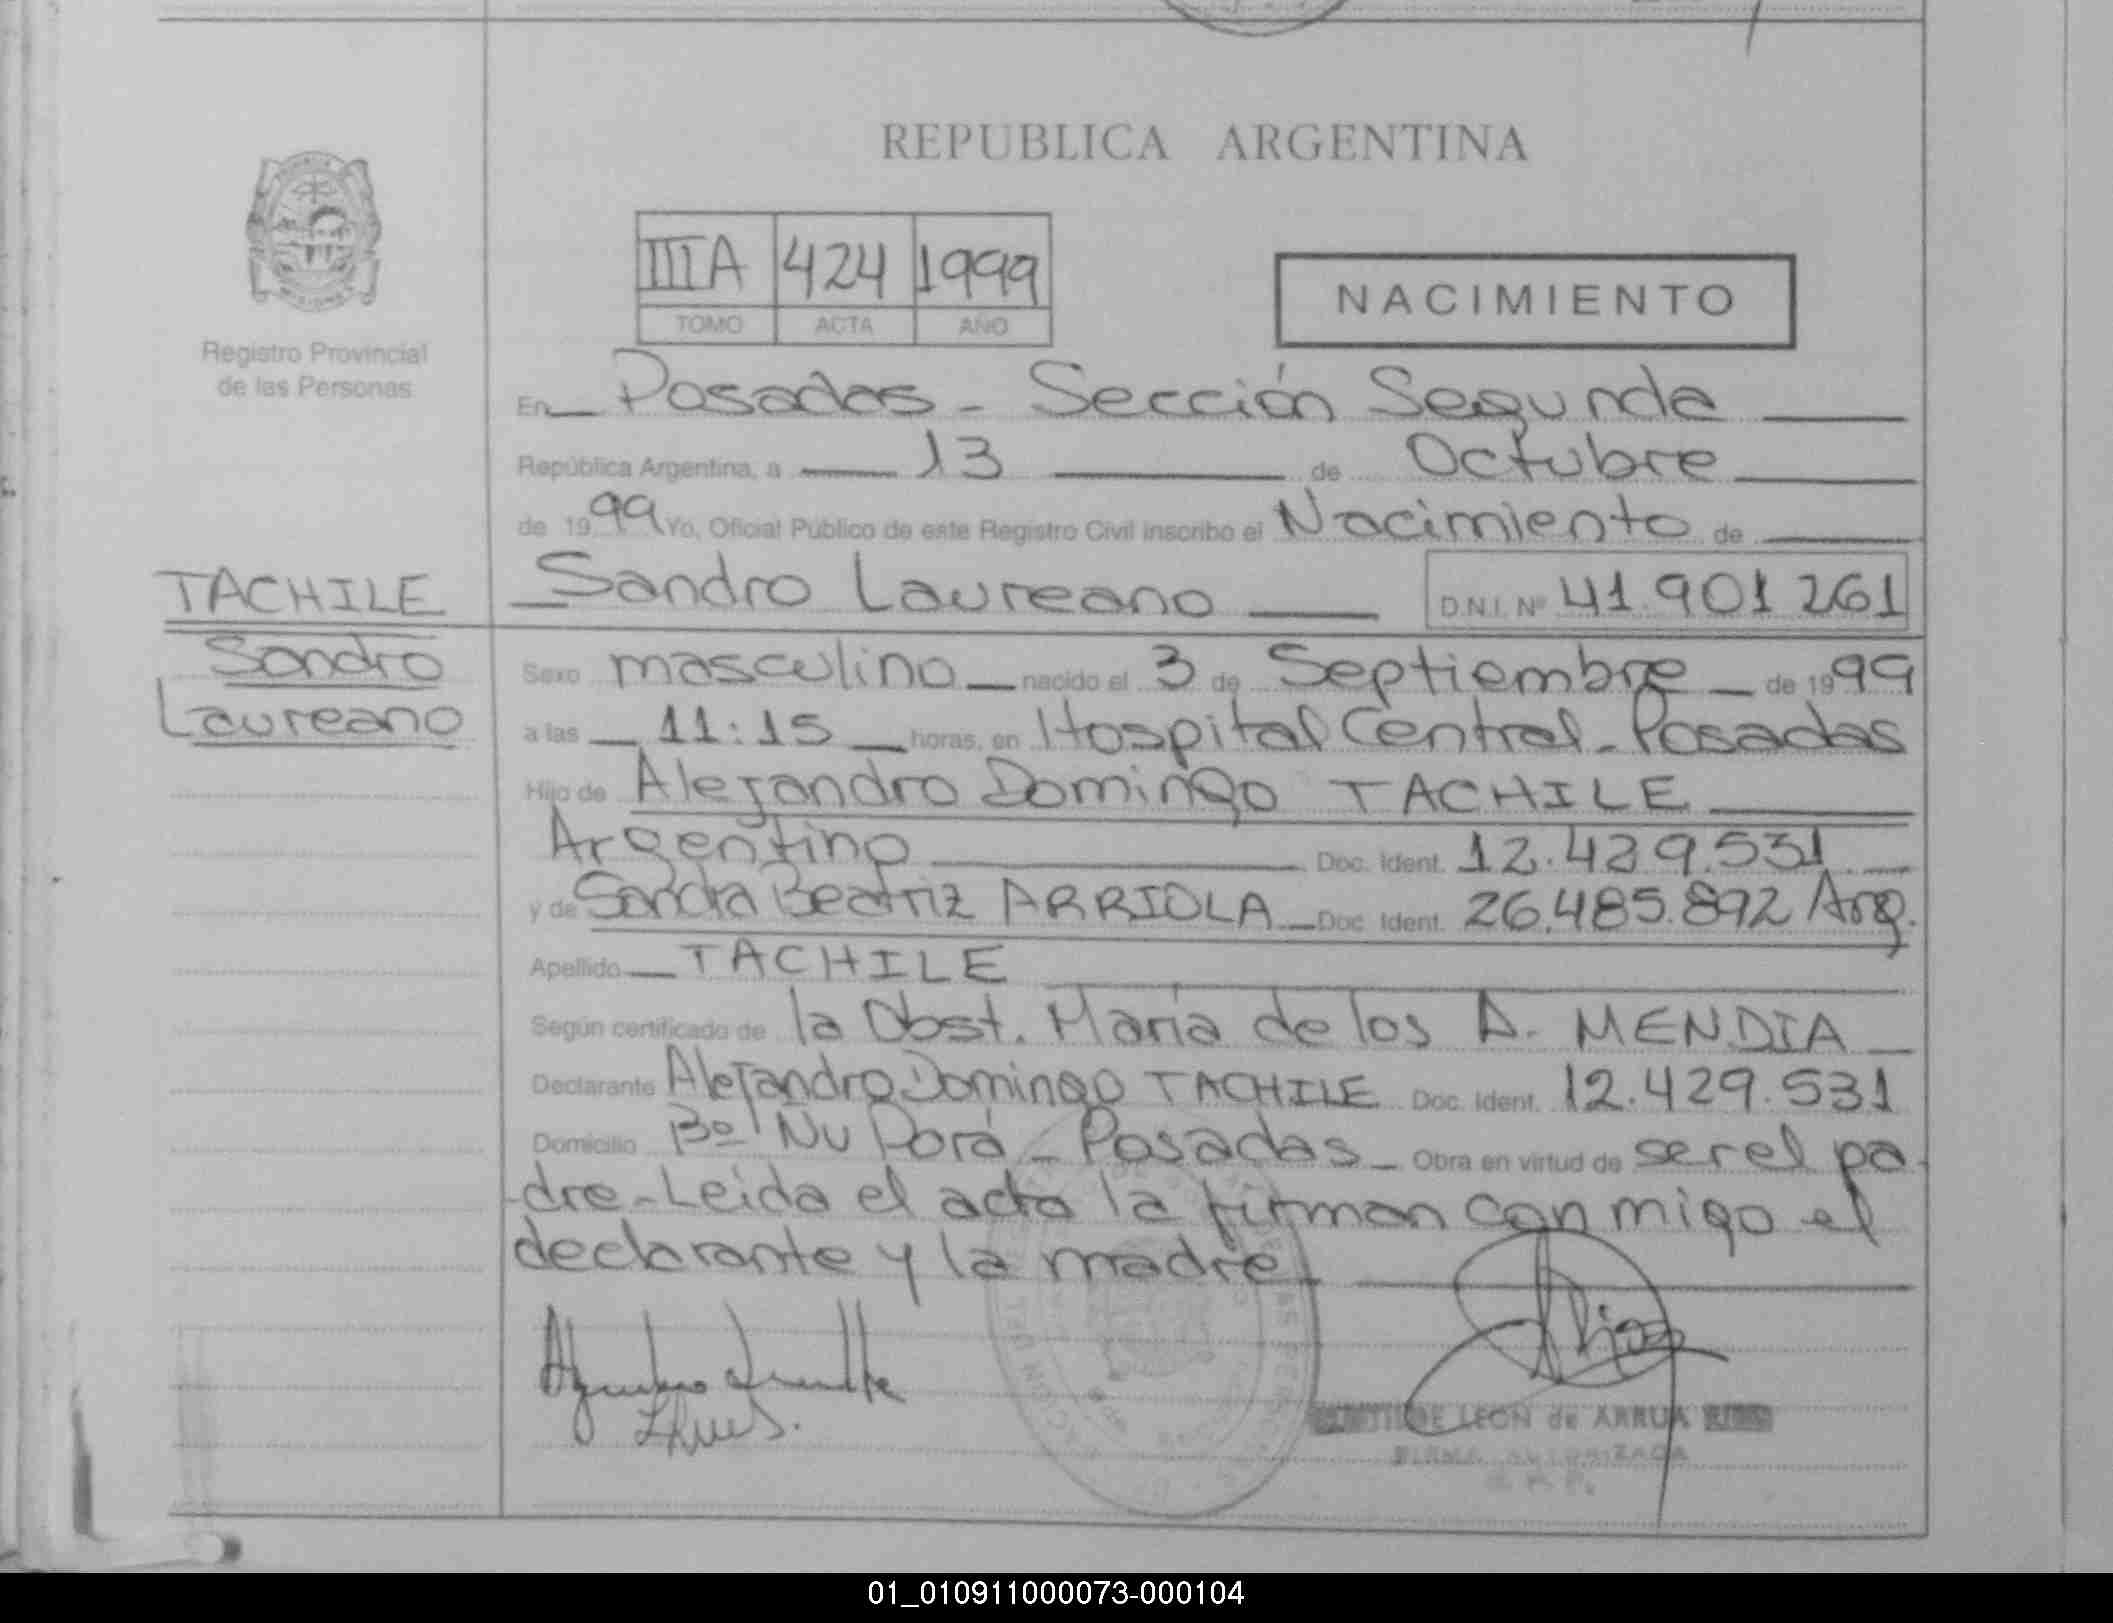 REPUBLICA ARGENTINA
IIIA 424 1999
TOMO ACTA AÑO
NACIMIENTO
Registro Provincial
de las Personas
TACHILE
Sandro
Laureano
En Posadas - Sección Segunda
República Argentina, a 13 de Octubre
de 1999 Yo, Oficial Público de este Registro Civil inscribo el Nacimiento de
Sandro Laureano D.N.I. Nº 41.901 261
Sexo masculino nacido el 3 de Septiembre de 1999
a las 11:15 horas, en Hospital Central - Posadas
Hijo de Alejandro Domingo TACHILE
Argentino Doc. Ident. 12.429.531
y de Sandra Beatriz ARRIOLA Doc. Ident. 26.485.892 Arg.
Apellido TACHILE
Según certificado de la Obst. María de los A. MENDIA
Declarante Alejandro Domingo TACHILE Doc. Ident. 12.429.531
Domicilio Bº Ñu Porá - Posadas Obra en virtud de ser el pa
dre - Leida el acta la firman conmigo el
declarante y la madre
LEON de ARRUA
FIRMA AUTORIZADA
01_010911000073-000104